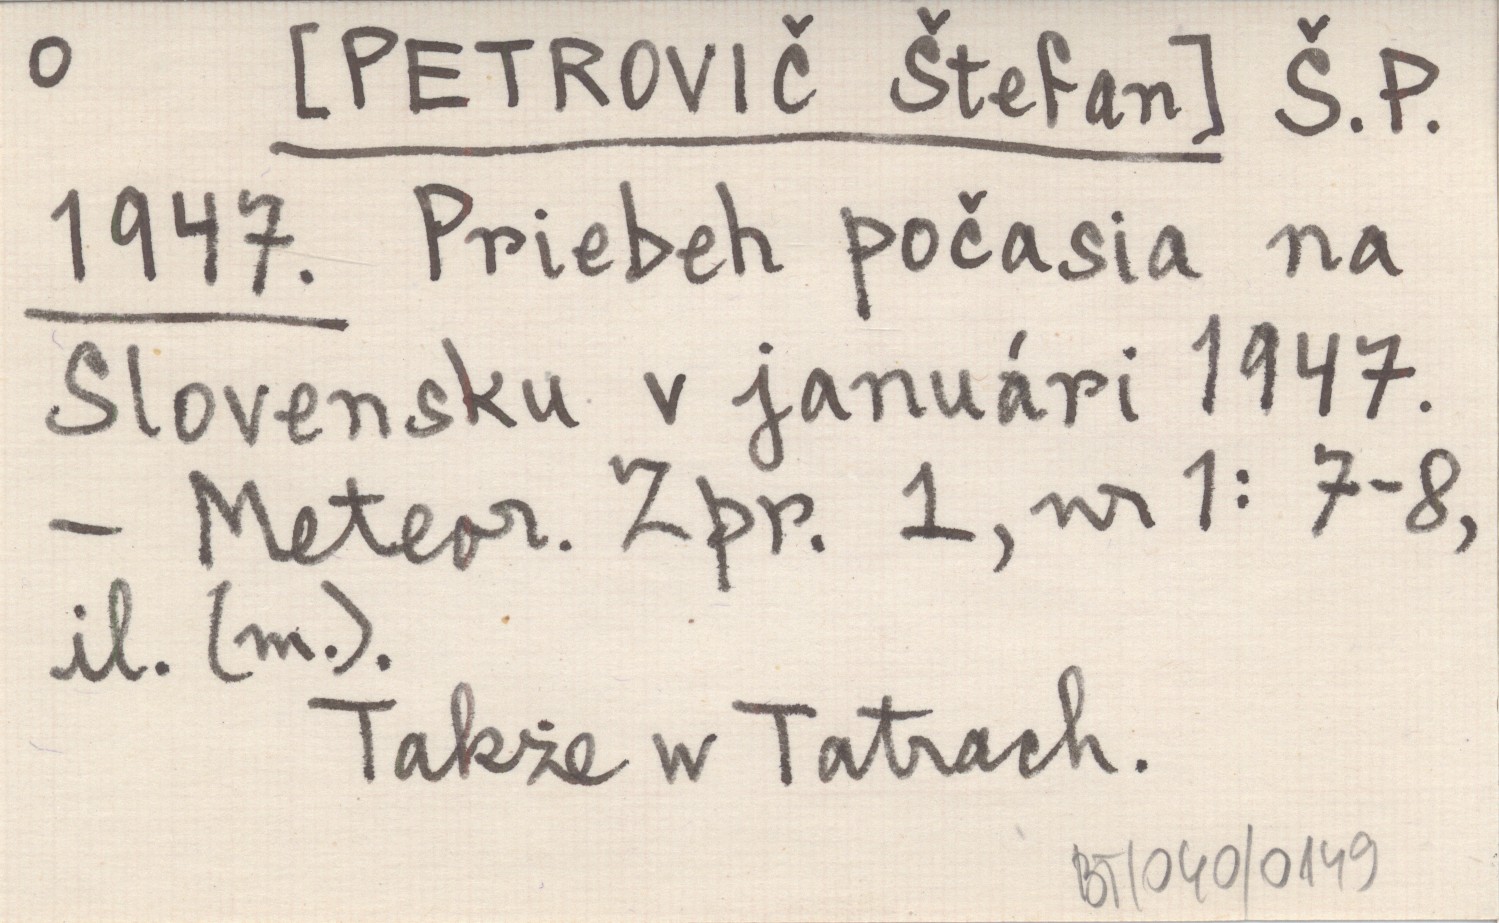 o [PETROVIČ Štefan] Š.P.
1947. Priebeh počasia na
Slovensku v januári 1947.
– Meteor. Zpr. 1, nr 1: 7-8,
il. (m.).
Także w Tatrach.
BT/040/0149